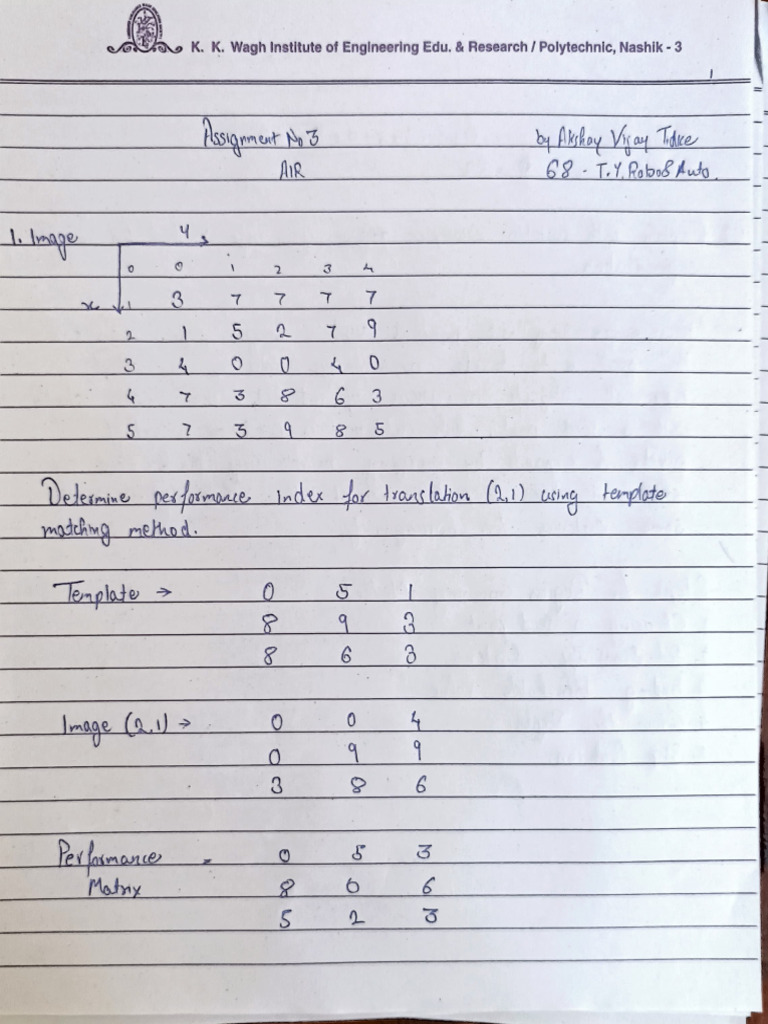 K. K. Wagh Institute of Engineering Edu. & Research / Polytechnic, Nashik - 3
1
Assignment No 3 by Akshay Vijay
AIR 68 - T.Y. Robo & Auto.
1. Image y
0 0 1 2 3 4
x 1 3 7 7 7 7
2 1 5 2 7 9
3 4 0 0 4 0
4 7 3 8 6 3
5 7 3 9 8 5
Determine performance index for translation (2,1) using template
matching method.
Template → 0 5 1
8 9 3
8 6 3
Image (2,1) → 0 0 4
0 9 9
3 8 6
Performance = 0 5 3
Matrix 8 0 6
5 2 3